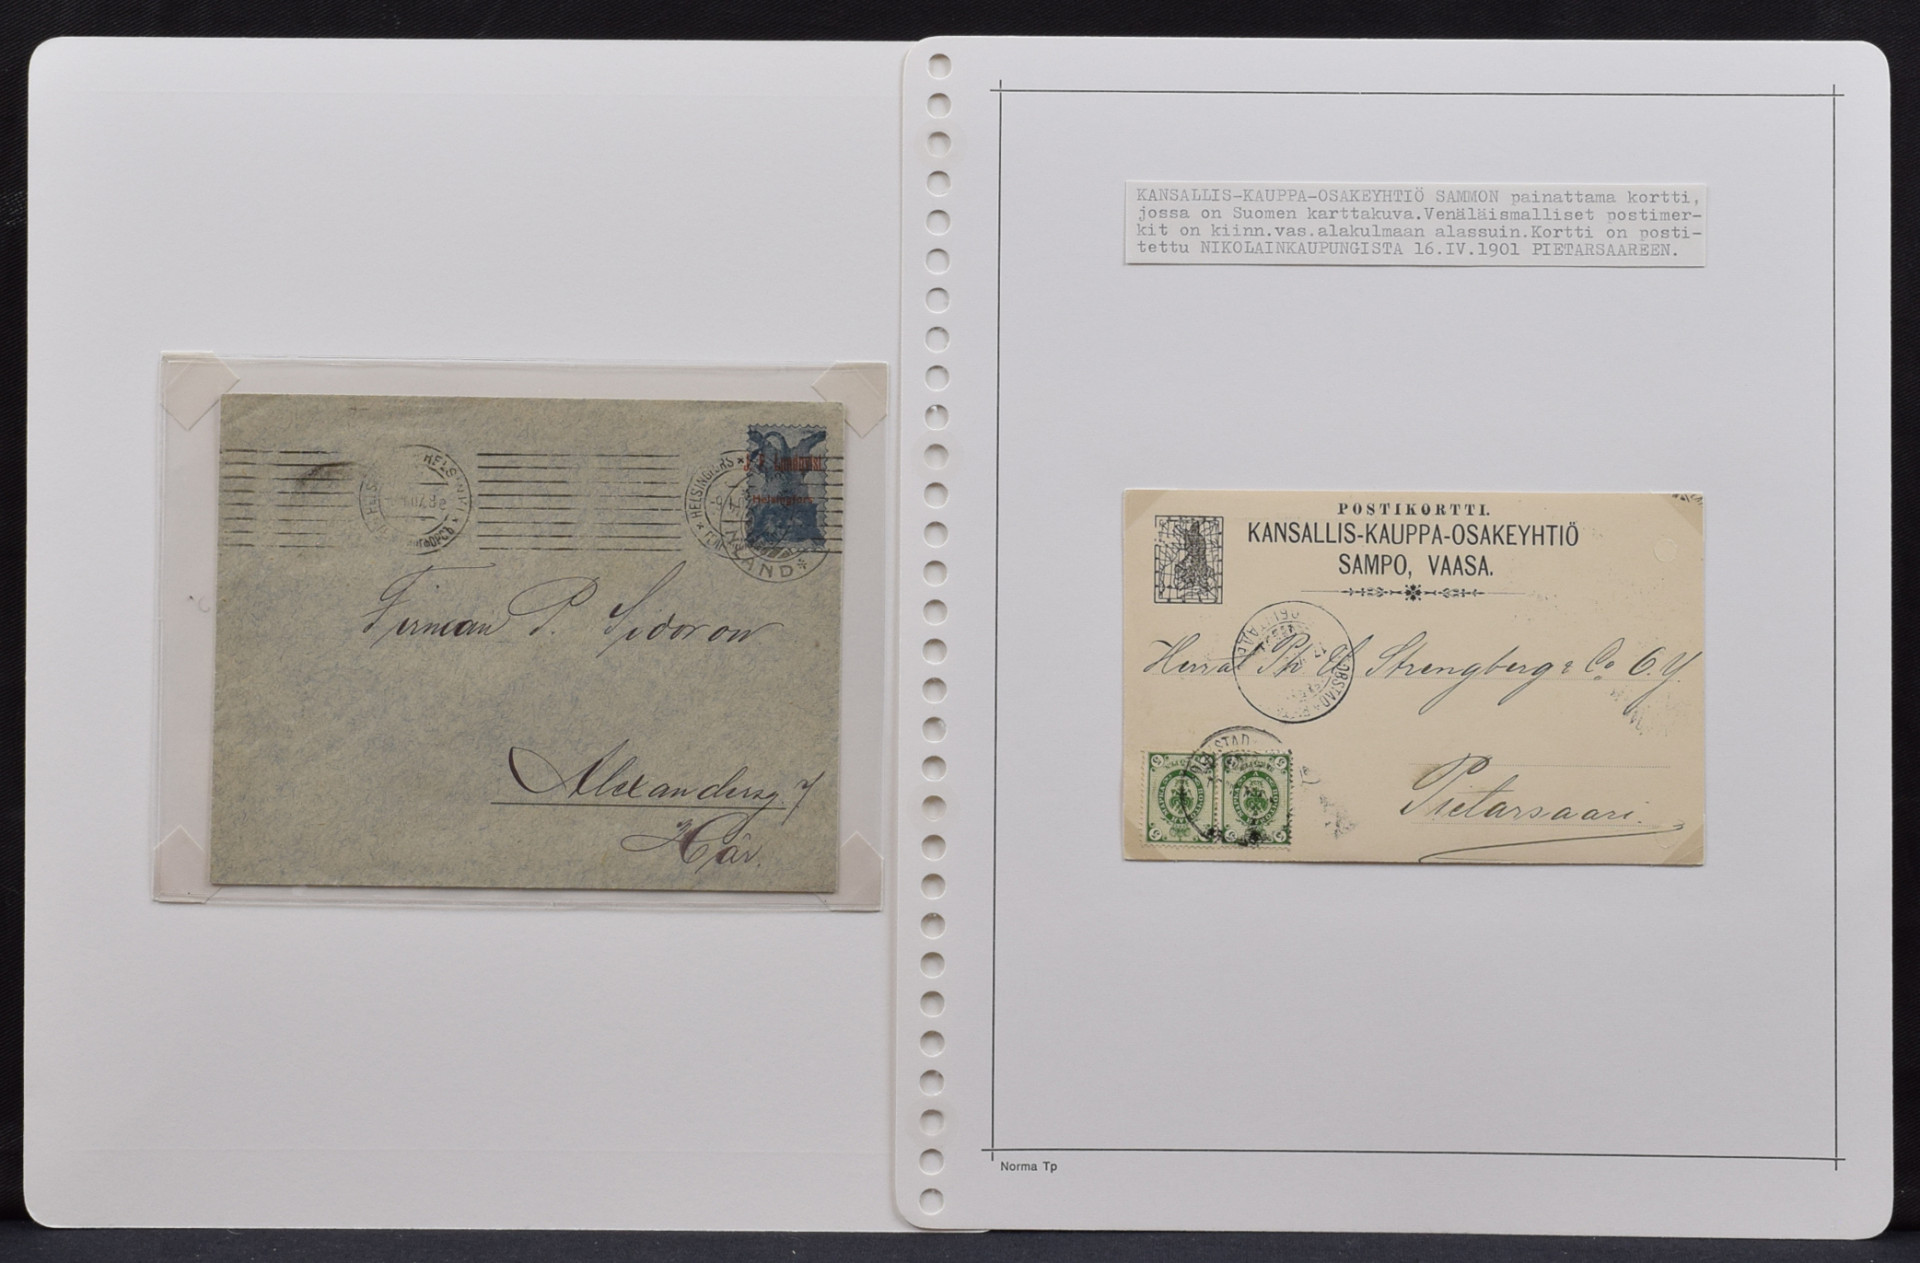 HELSINKI
HELSINGFORS
Helsingfors
AND
Firman P. Sidorow
Alexandersg. 7
Här.
KANSALLIS-KAUPPA-OSAKEYHTIÖ SAMMON painattama kortti,
jossa on Suomen karttakuva.Venäläismalliset postimer-
kit on kiinn.vas.alakulmaan alassuin.Kortti on posti-
tettu NIKOLAINKAUPUNGISTA 16.IV.1901 PIETARSAAREEN.
POSTIKORTTI.
KANSALLIS-KAUPPA-OSAKEYHTIÖ
SAMPO, VAASA.
Herrat Ph. U. Strengberg & Co O.Y.
Pietarsaari.
Norma Tp